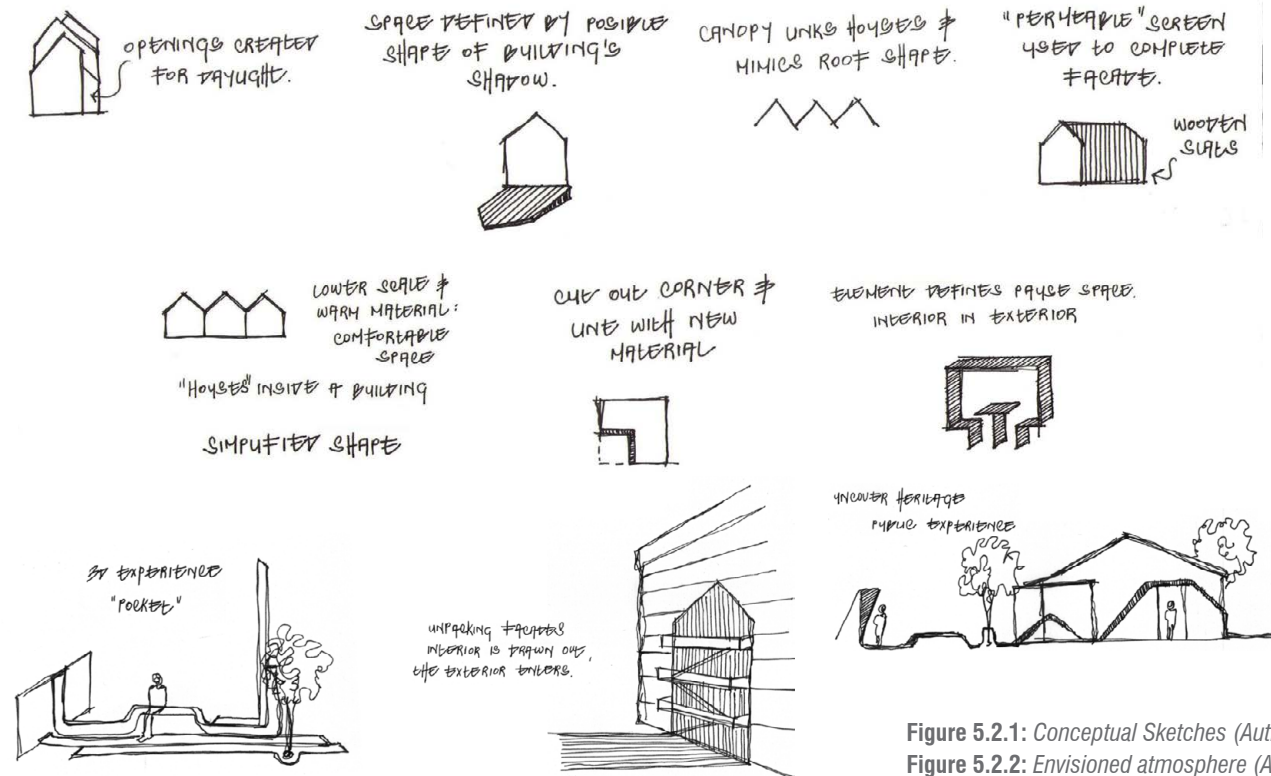 OPENINGS CREATED
FOR DAYLIGHT.
SPACE DEFINED BY POSIBLE
SHAPE OF BUILDING'S
SHADOW.
CANOPY LINKS HOUSES &
MIMICS ROOF SHAPE.
"PERMEABLE" SCREEN
USED TO COMPLETE
FACADE.
WOODEN
SLATS
LOWER SCALE &
WARM MATERIAL:
COMFORTABLE
SPACE
"HOUSES" INSIDE A BUILDING
SIMPLIFIED SHAPE
CUT OUT CORNER &
LINE WITH NEW
MATERIAL
ELEMENT DEFINES PAUSE SPACE.
INTERIOR IN EXTERIOR
3D EXPERIENCE
"POCKET"
UNPACKING FACADES
INTERIOR IS DRAWN OUT,
THE EXTERIOR ENTERS.
UNCOVER HERITAGE
PUBLIC EXPERIENCE
Figure 5.2.1: Conceptual Sketches (Aut
Figure 5.2.2: Envisioned atmosphere (A